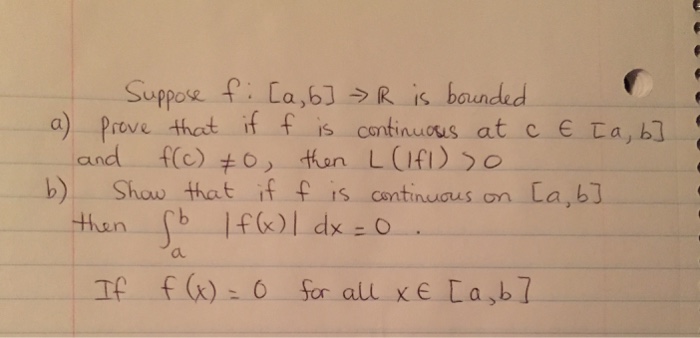 Suppose f: [a,b] → R is bounded
a) prove that if f is continuous at c ∈ [a,b]
and f(c) ≠ 0, then L(|f|) > 0
b) Show that if f is continuous on [a,b]
then ∫ₐᵇ |f(x)| dx = 0 .
If f(x) = 0 for all x ∈ [a,b]